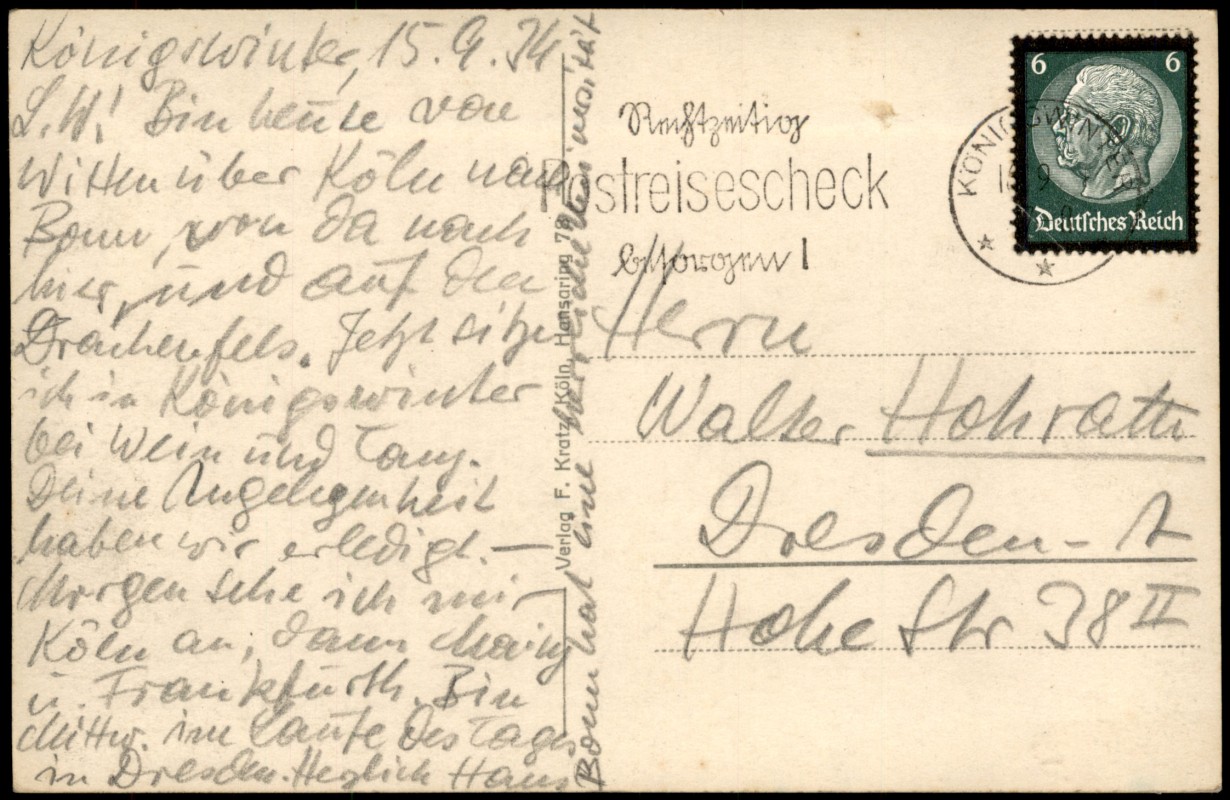 Königswinter, 15.9.34
L.W! Bin heute von
Witten über Köln nach
Bonn, von da nach
hier, und auf den
Drachenfels. Jetzt sitze
ich in Königswinter
bei Wein und Tanz.
Deine Angelegenheit
haben wir erledigt. —
Morgen sehe ich mir
Köln an, dann Mainz
u. Frankfurth. Bin
Mittw. im Laufe des Tages
in Dresden. Herzlich Hans
Bonn hat eine Universität
Verlag F. Kratz, Köln, Hansaring 78
Rechtzeitig
Postreisescheck
besorgen!
6 6
Deutsches Reich
KÖNIGSWINTER
Herrn
Walter Hohrath
Dresden-A
Hohe Str 38 II